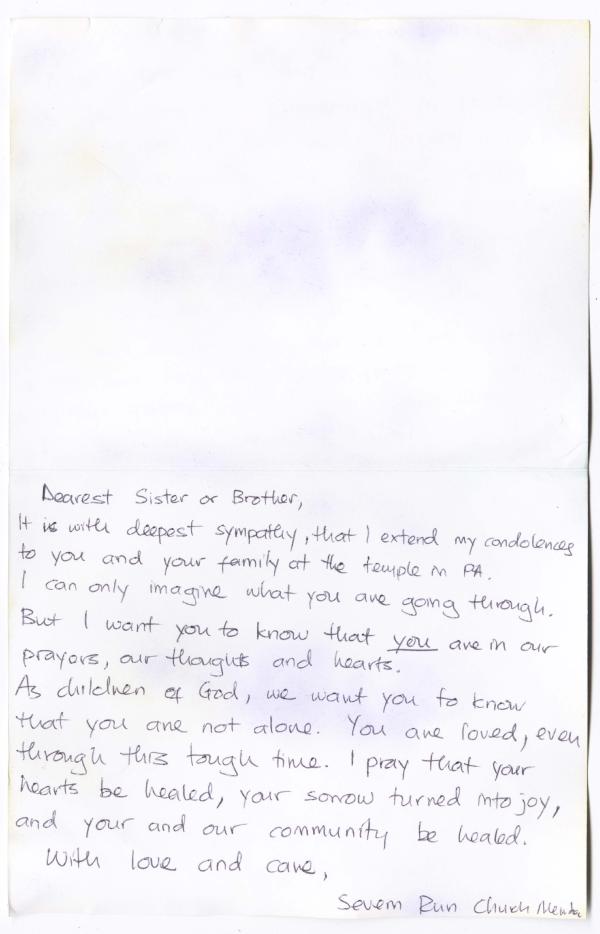 Dearest Sister or Brother,
It is with deepest sympathy, that I extend my condolences
to you and your family at the temple in PA.
I can only imagine what you are going through.
But I want you to know that you are in our
prayors, our thoughts and hearts.
As children of God, we want you to know
that you are not alone. You are loved, even
through this tough time. I pray that your
hearts be healed, your sorrow turned into joy,
and your and our community be healed.
With love and care,
Severn Run Church